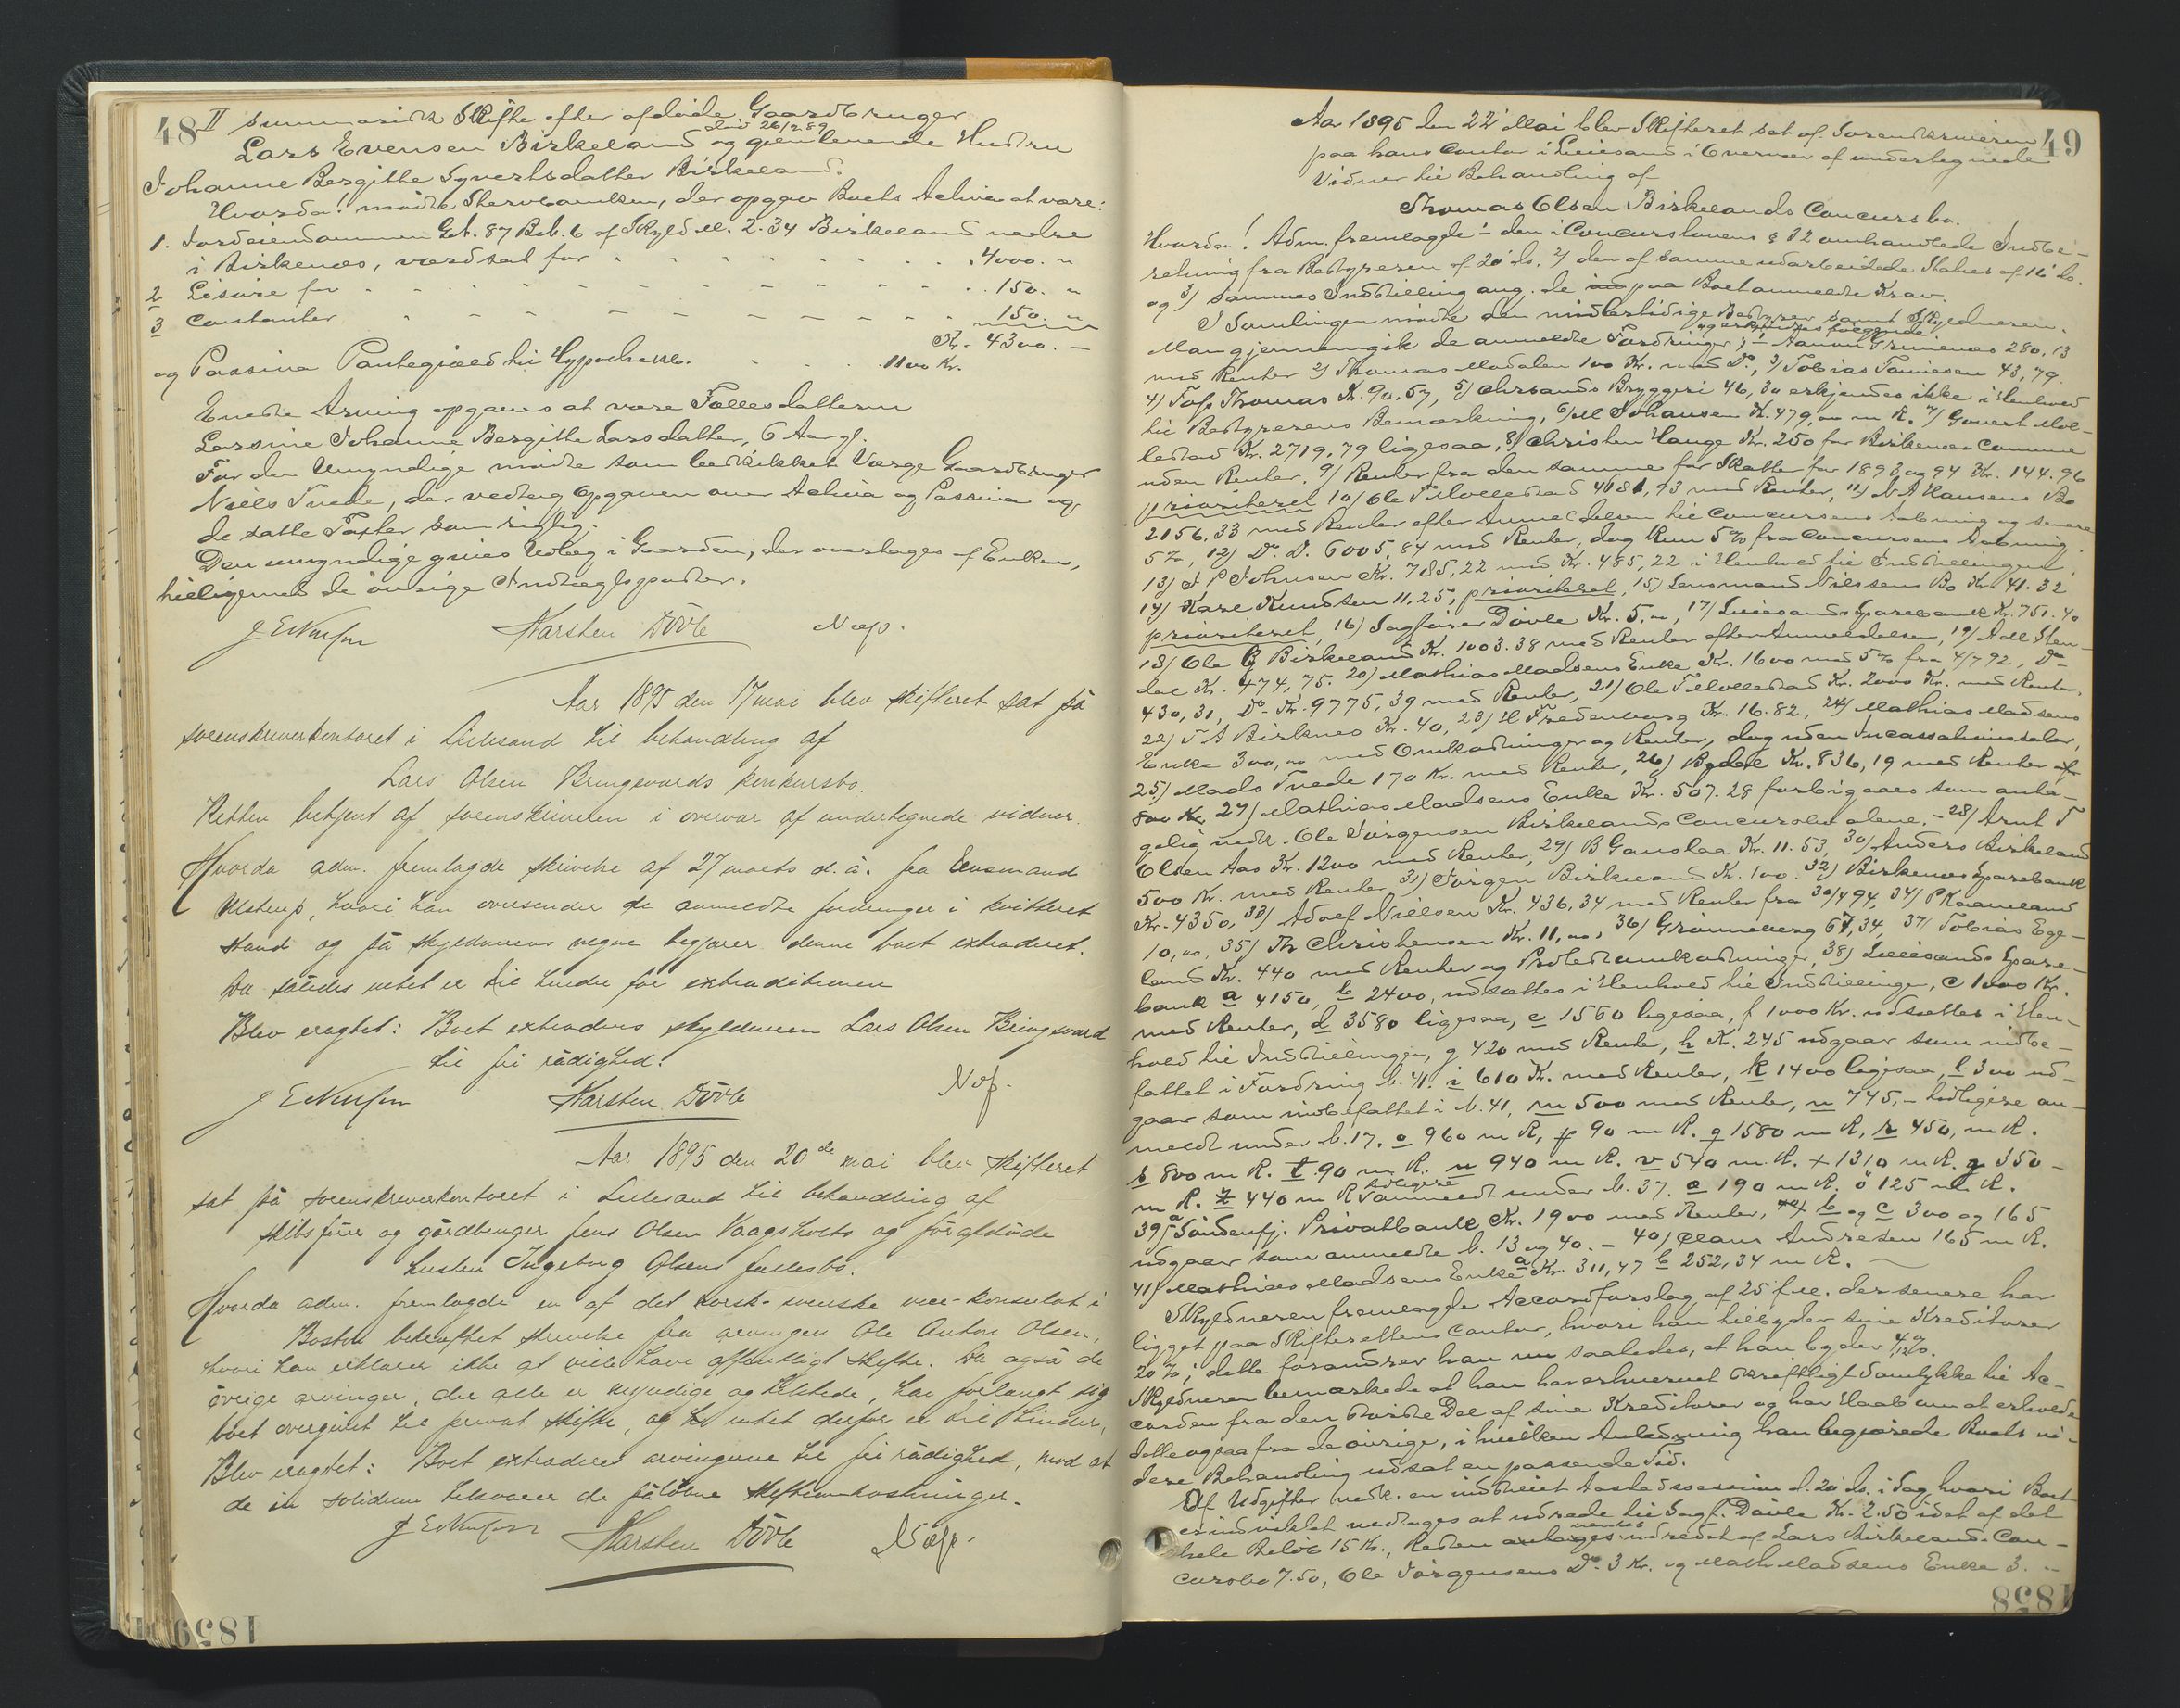 48
II summarisk Skifte efter afdøde Gaardbruger
Lars Evensen Birkeland død 26/2 89 og gjenlevende Hustru
Johanne Bergitte Syvertsdatter Birkeland.
Hvorda! mødte Stervboenken, der opgav Boets Activa at være:
1. Jordeiendommen Gt. 87 Bb. 6 af Skyld M. 2.34 Birkeland nedre
i Birkenes, værdsat for 4000. "
2 Løsøre for 150. "
3 Contanter 150. "
Kr. 4300. –
og Passiva Pantegjæld til Hypothekb. 1100 Kr.
Eneste Arving opgaves at være Fællesdatteren
Larsine Johanne Bergitte Larsdatter, 6 Aar gl.
For den Umyndige mødte som beskikket Værge Gaardbruger
Niels Tvede, der vedtog Opgaven over Activa og Passiva og
de satte Taxter som rigtig.
Den umyndige gives Udlæg i Gaarden, der overtages af Enken,
tilligemed de øvrige Indtægtsposter.
Karsten Dövle
Aar 1895 den 17 mai blev skifteret sat på
sorenskriverkontoret i Lillesand til behandling af
Lars Olsen Bringsværds konkursbo.
Retten betjent af sorenskriveren i overvær af undertegnede vidner.
Hvorda adm. fremlagde skrivelse af 27 marts d. å. fra Lensmand
Ulstrup, hvori han oversender de anmeldte fordringer i kvitteret
stand og på skyldnerens vegne begjærer denne boet extraderet.
Da således intet er til hinder for extraditionen
Blev eragtet: Boet extraderes skyldneren Lars Olsen Bringsværd
til fri rådighed.
Karsten Dövle
Aar 1895 den 20de mai blev skifteret
sat på sorenskriverkontoret i Lillesand til behandling af
skibsfører og gårdbruger Jens Olsen Vaagsholts og förafdöde
hustru Ingeborg Olsens fællesbo.
Hvorda adm. fremlagde en af det norsk-svenske vice-konsulat i
Boston bekræftet skrivelse fra arvingen Ole Anton Olsen,
hvori han erklærer ikke at ville have offentligt skifte. Da også de
övrige arvinger, der alle er myndige og tilstede, har forlangt sig
boet overgivet til privat skifte, og intet derfor er til hinder,
Blev eragtet: Boet extraderes arvingerne til fri rådighed, mod at
de in solidum tilsvarer de påløbne skifteomkostninger.
Karsten Dövle
49
Aar 1895 den 22 Mai blev Skifteret sat af Sorenskriveren
paa hans Contor i Lillesand i Overvær af undertegnede
Vidner til Behandling af
Thomas Olsen Birkelands Concursbo.
Hvorda! Adm. fremlagde 1 den i Concurslovens § 32 omhandlede Indbe-
retning fra Bestyreren af 20 ds. 2) den af samme udarbeidede Status af 16 ds.
og 3) sammes Indstilling ang. de paa Boet anmeldte Krav.
I Samlingen mødte den midlertidige Bestyrer samt Skyldneren.
Man gjennemgik de anmeldte Fordringer og erkjendtes følgende: 1 Aanon Grimenes 280,13
med Renter 2) Thomas Modalen 100 Kr. med Do, 3) Tobias Tønnesen 43,79
4) Tofs Thomas K. 90.57, 5) Chrsands Bryggeri 46,30 erkjendes ikke i Henhold
til Bestyrerens Bemærkning, 6) M Johansen K. 479,00 m R. 7) Govert Mol-
lestad Kr. 2719,79 ligesaa, 8) Christen Hauge Kr. 250 for Birkenes Commune
uden Renter. 9) Renter fra den samme for Skatter for 1893 og 94 Kr. 144.96
prioriteret 10) Ole T Mollestad 4181,93 med Renter, 11) N A Hansens Bo
2156,33 med Renter efter Anmeldelsen til Concursens Aabning og senere
5%, 12) Do D. 6005,84 med Renter, dog kun 5% fra Concursens Aabning.
13) J P Johnsen Kr. 785,22 med Kr. 485,22 i Henhold til Indstillingen.
14) Karl Knudsen 11.25, prioriteret, 15) Lensmand Nielsens Bo Kr. 41.32
prioriteret, 16) Sagfører Dövle Kr. 5,00, 17) Lillesands Sparebank Kr. 751.40
18) Ole G Birkeland Kr. 1003.38 med Renter efter Anmeldelsen, 19) A M Sten-
dal Kr. 474,75. 20) Mathias Madsens Enke Kr. 1600 med 5% fra 4/7 92, Do
430,31, Do Kr. 9775,39 med Renter, 21) Ole T Mollestad Kr. 2000 Kr. med Renter.
22) T A Birknes Kr. 40, 23) H Fredenborg Kr. 16.82, 24) Mathias Madsens
Enke 300,00 med Omkostninger og Renter, dog uden Incassationssalær,
25) Mads Tvede 170 Kr. med Renter, 26) Bydal Kr. 836,19 med Renter af
800 Kr, 27) Mathias Madsens Enke Kr. 507.28 forbigaaes som anta-
gelig vedk. Ole Jørgensen Birkelands Concursbo alene. – 28) Arnt T
Olsen Aas Kr. 1200 med Renter, 29) B Gauslaa Kr. 11.53, 30) Anders Birkeland
500 Kr. med Renter 31) Jørgen Birkeland Kr. 100. 32) Birkenes Sparebank
Kr. 4350, 33) Adolf Nielsen Kr. 436,34 med Renter fra 30/4 94, 34) P Knameland
10,00, 35) Th Christensen Kr. 11,00, 36) Grønneberg 67,34, 37) Tobias Ege-
land Kr. 440 med Renter og Protestomkostninger, 38) Lillesands Spare-
bank a 4150, b 2400, udsættes i Henhold til Indstillingen, c 1000 Kr.
med Renter, d 3580 ligesaa, e 1560 ligesaa, f 1000 Kr. udsættes i Hen-
hold til Indstillingen, g 420 med Renter, h Kr. 245 udgaar som indbe-
fattet i Fordring l. 41. i 610 Kr. med Renter, k 1400 ligesaa, l 300 ud-
gaar som indbefattet i l. 41, m 500 med Renter, n 745,- tidligere an-
meldt under l. 17. o 960 m R, p 90 m R. q 1580 m R, r 450, m R.
s 800 m R. t 90 m R. u 940 m R. v 540 m R. x 1310 m R. y 350 –
m R. z 440 m R tidligere anmeldt under l. 37. a 190 m R. ö 125 m R.
39) a Söndenfj. Privatbank Kr. 1900 med Renter, b og c 300 og 165
udgaar som anmeldte l. 13 og 40. – 40) Claus Andresen 165 m R.
41) Mathias Madsens Enke a Kr. 311,47 b 252,34 m R.
Skyldneren fremlagde Accordforslag af 25 f. M. der senere har
ligget paa Skifterettens Contor, hvori han tilbyder sine Kreditorer
20 %; dette forandrer han nu saaledes, at han byder
Skyldneren bemærkede at han har erhvervet skriftligt Samtykke til Ac-
corden fra den største Del af sine Kreditorer og har Haab om at erholde
dette ogsaa fra de øvrige, i hvilken Anledning han begjærede Boets vi-
dere Behandling udsat en passende Tid.
Af Udgifter vedk. en indstevnt Aastedssession d. 20 ds. i Sag hvori Boet
er indviklet vedtages at udrede til Sagf. Dövle Kr. 2.50 idet af det
hele Beløb 15 Kr., Resten ventes udredet af Lars Birkelands Con-
cursbo 7.50, Ole Jørgensens Do 3 Kr. og Math. Madsens Enke 3. –